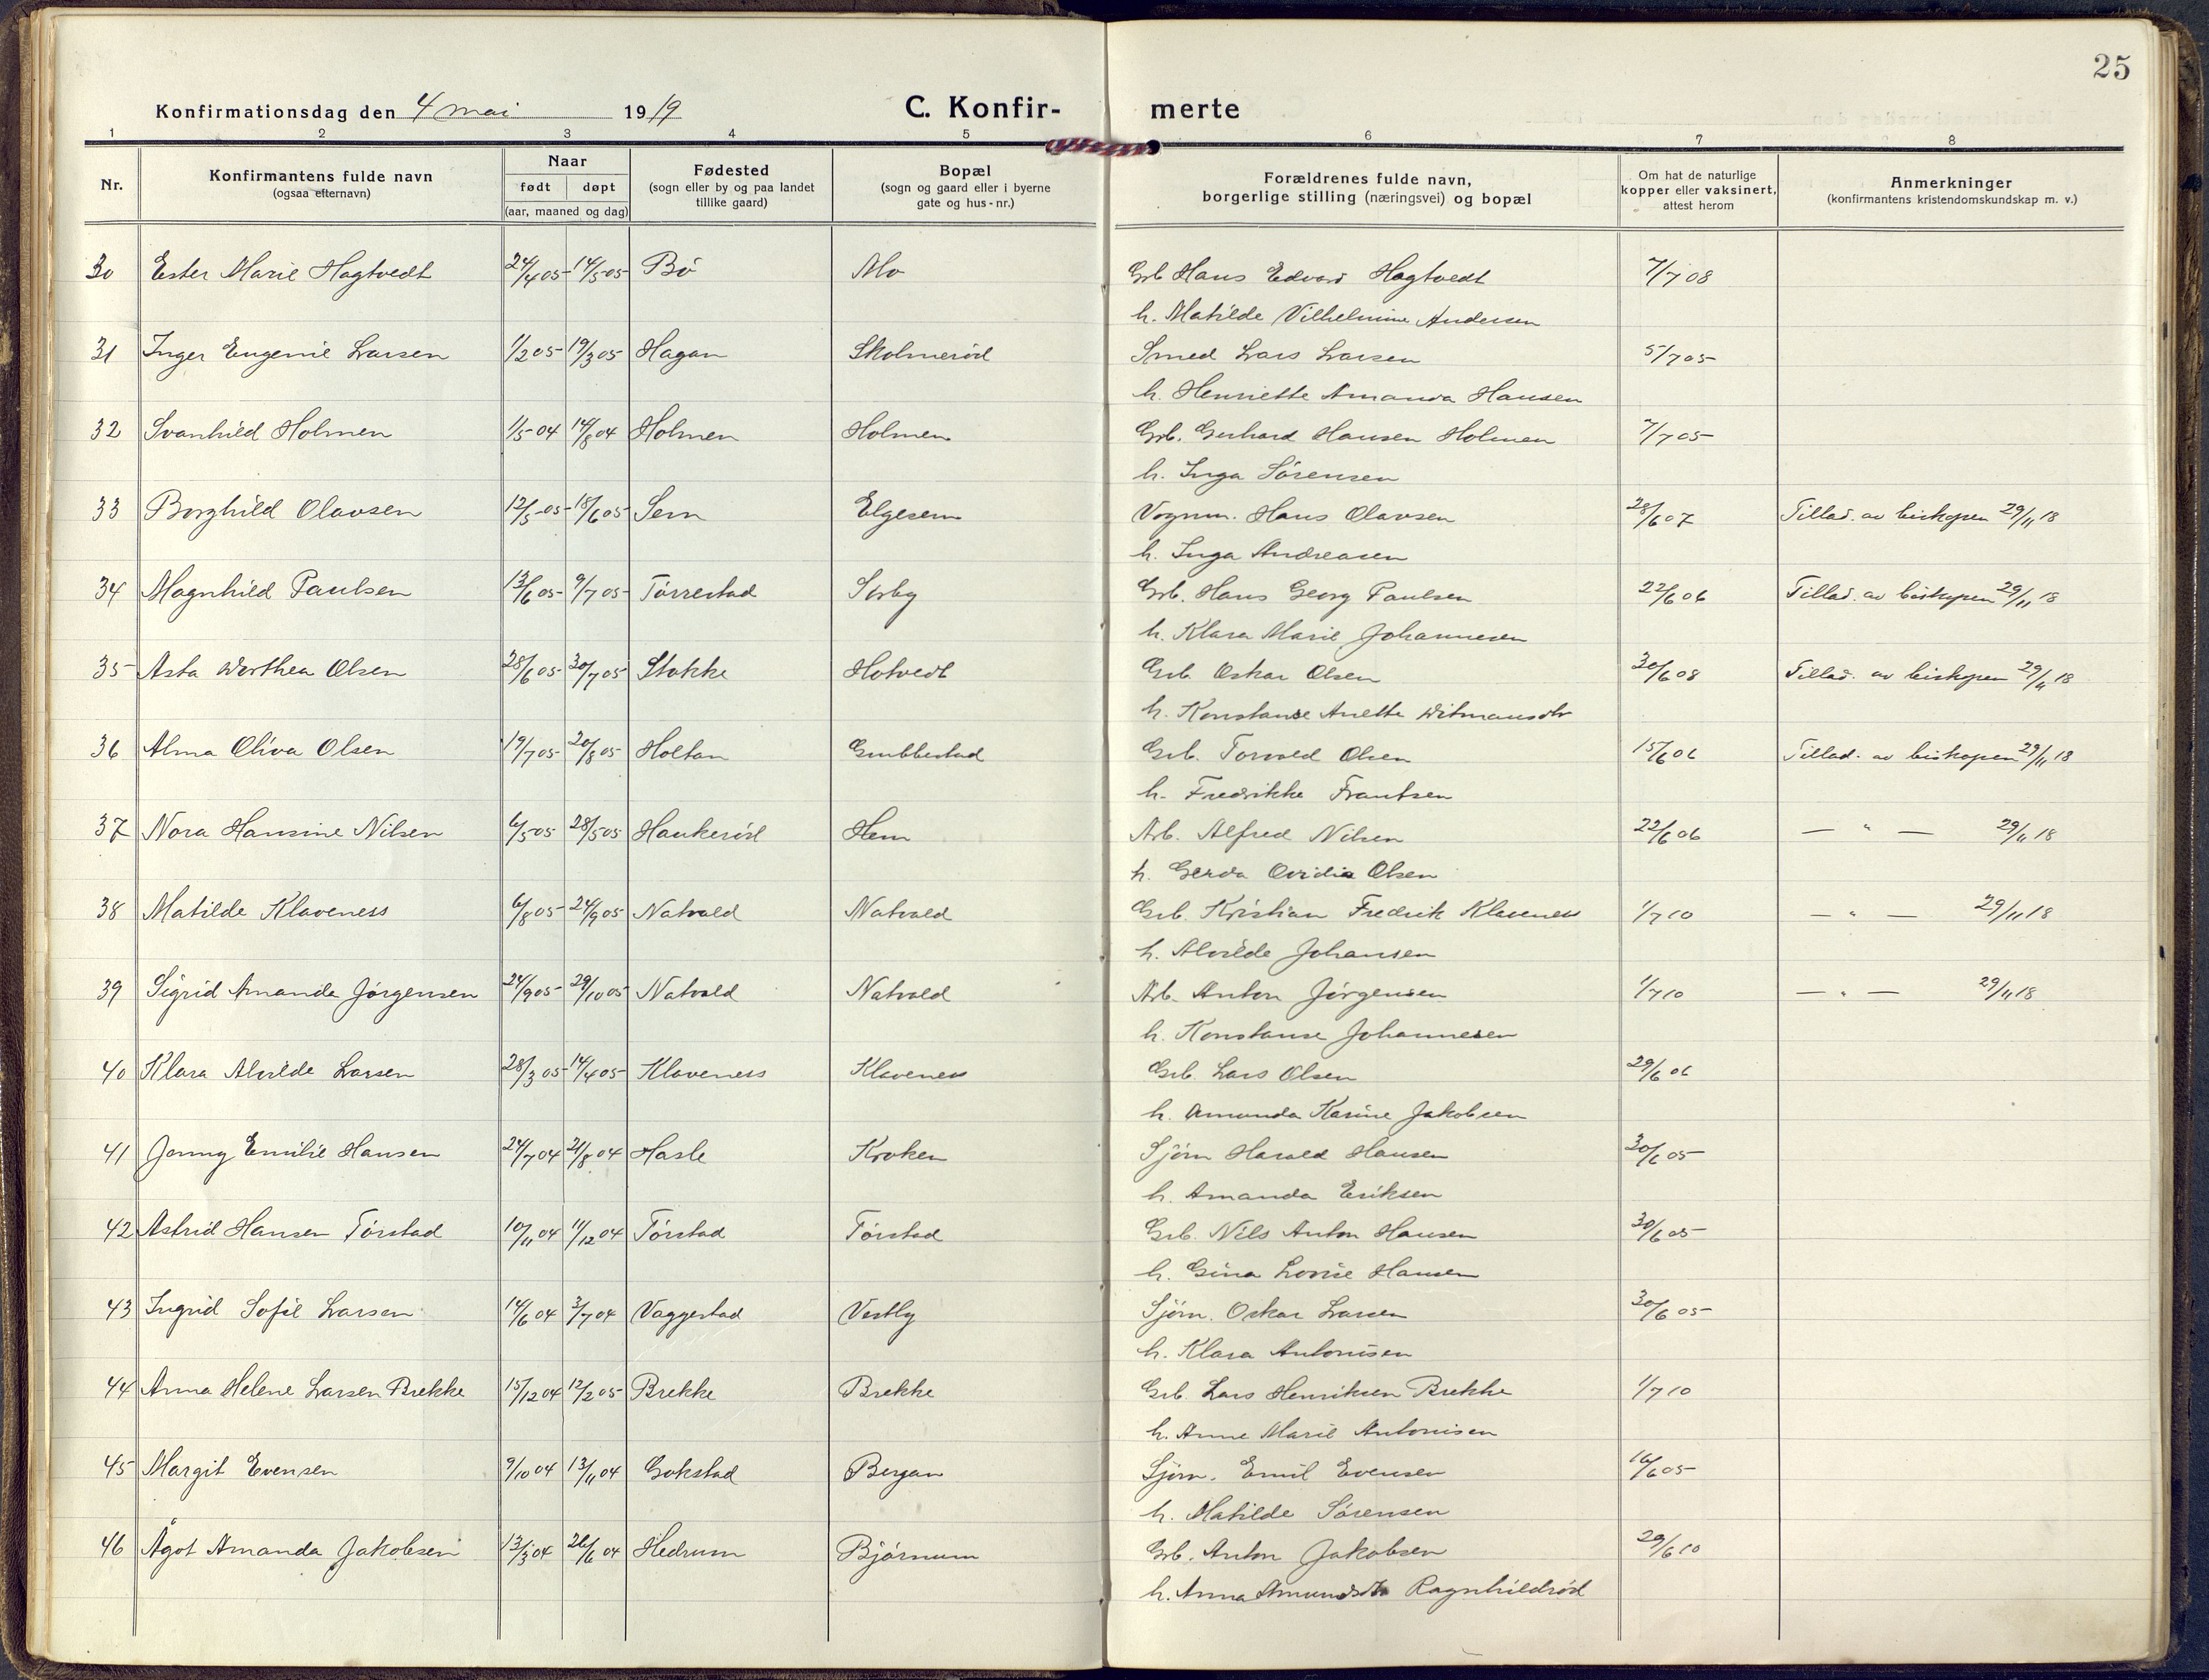 25
Konfirmationsdag den 4 mai 1919 C. Konfir- merte
1 2 3 4 5 6 7 8
Nr. Konfirmantens fulde navn (ogsaa efternavn) Naar født døpt (aar, maaned og dag) Fødested (sogn eller by og paa landet tillike gaard) Bopæl (sogn og gaard eller i byerne gate og hus-nr.) Forældrenes fulde navn, borgerlige stilling (næringsvei) og bopæl Om hat de naturlige kopper eller vaksinert, attest herom Anmerkninger (konfirmantens kristendomskundskap m. v.)
30 Ester Marie Hagtvedt 24/4 05 14/5 05 Bö Mo Grb Hans Edvard Hagtvedt 7/7 08
h. Matilde Vilhelmine Andersen
31 Inger Eugenie Larsen 1/2 05 19/3 05 Hagan Skolmeröd Smed Lars Larsen 5/7 05
h. Henriette Amanda Hansen
32 Svanhild Holmen 1/5 04 14/8 04 Holmen Holmen Grb. Gerhard Hansen Holmen 7/7 05
h. Inga Sörensen
33 Borghild Olavsen 12/5 05 18/6 05 Sem Elgesem Vognm. Hans Olavsen 28/6 07 Tillad. av biskopen 29/11 18
h. Inga Andreasen
34 Magnhild Paulsen 13/6 05 9/7 05 Törrestad Sörby Grb. Hans Georg Paulsen 22/6 06 Tillad. av biskopen 29/11 18
h. Klara Marie Johannesen
35 Asta Dorthea Olsen 28/6 05 30/7 05 Stokke Hotvedt Grb. Oskar Olsen 30/6 08 Tillad. av biskopen 29/11 18
h. Konstanse Anette Ditmansdtr
36 Alma Oliva Olsen 19/7 05 20/8 05 Holtan Grubbestad Grb. Torvald Olsen 15/6 06 Tillad. av biskopen 29/11 18
h. Fredrikke Frantsen
37 Nora Hansine Nilsen 6/5 05 28/5 05 Haukeröd Hem Arb. Alfred Nilsen 22/6 06 — " — 29/11 18
h. Gerda Ovidia Olsen
38 Matilde Klaveness 6/8 05 24/9 05 Natvald Natvald Grb. Kristian Fredrik Klaveness 1/7 10 — " — 29/11 18
h. Alvilde Johansen
39 Sigrid Amanda Jörgensen 24/9 05 29/10 05 Natvald Natvald Arb. Anton Jörgensen 1/7 10 — " — 29/11 18
h. Konstanse Johannesen
40 Klara Alvilde Larsen 28/3 05 14/4 05 Klaveness Klaveness Grb. Lars Olsen 29/6 06
h. Amunda Karine Jakobsen
41 Jenny Emilie Hansen 24/7 04 21/8 04 Hasle Kroken Sjöm Harald Hansen 30/6 05
h. Amanda Eriksen
42 Astrid Hansen Törstad 10/11 04 11/12 04 Törstad Törstad Grb. Nils Anton Hansen 30/6 05
h. Gina Lovise Hansen
43 Ingrid Sofie Larsen 14/6 04 3/7 04 Vaggestad Vestby Sjöm. Oskar Larsen 30/6 05
h. Klara Antonisen
44 Anna Helene Larsen Brekke 15/12 04 12/2 05 Brekke Brekke Grb. Lars Henriksen Brekke 1/7 10
h. Anne Marie Antonisen
45 Margit Evensen 9/10 04 13/11 04 Gokstad Bergan Sjöm. Emil Evensen 16/6 05
h. Matilde Sörensen
46 Ågot Amanda Jakobsen 13/3 04 26/6 04 Hedrum Björnum Grb. Anton Jakobsen 29/6 10
h. Anna Amundsdtr Ragnhildröd